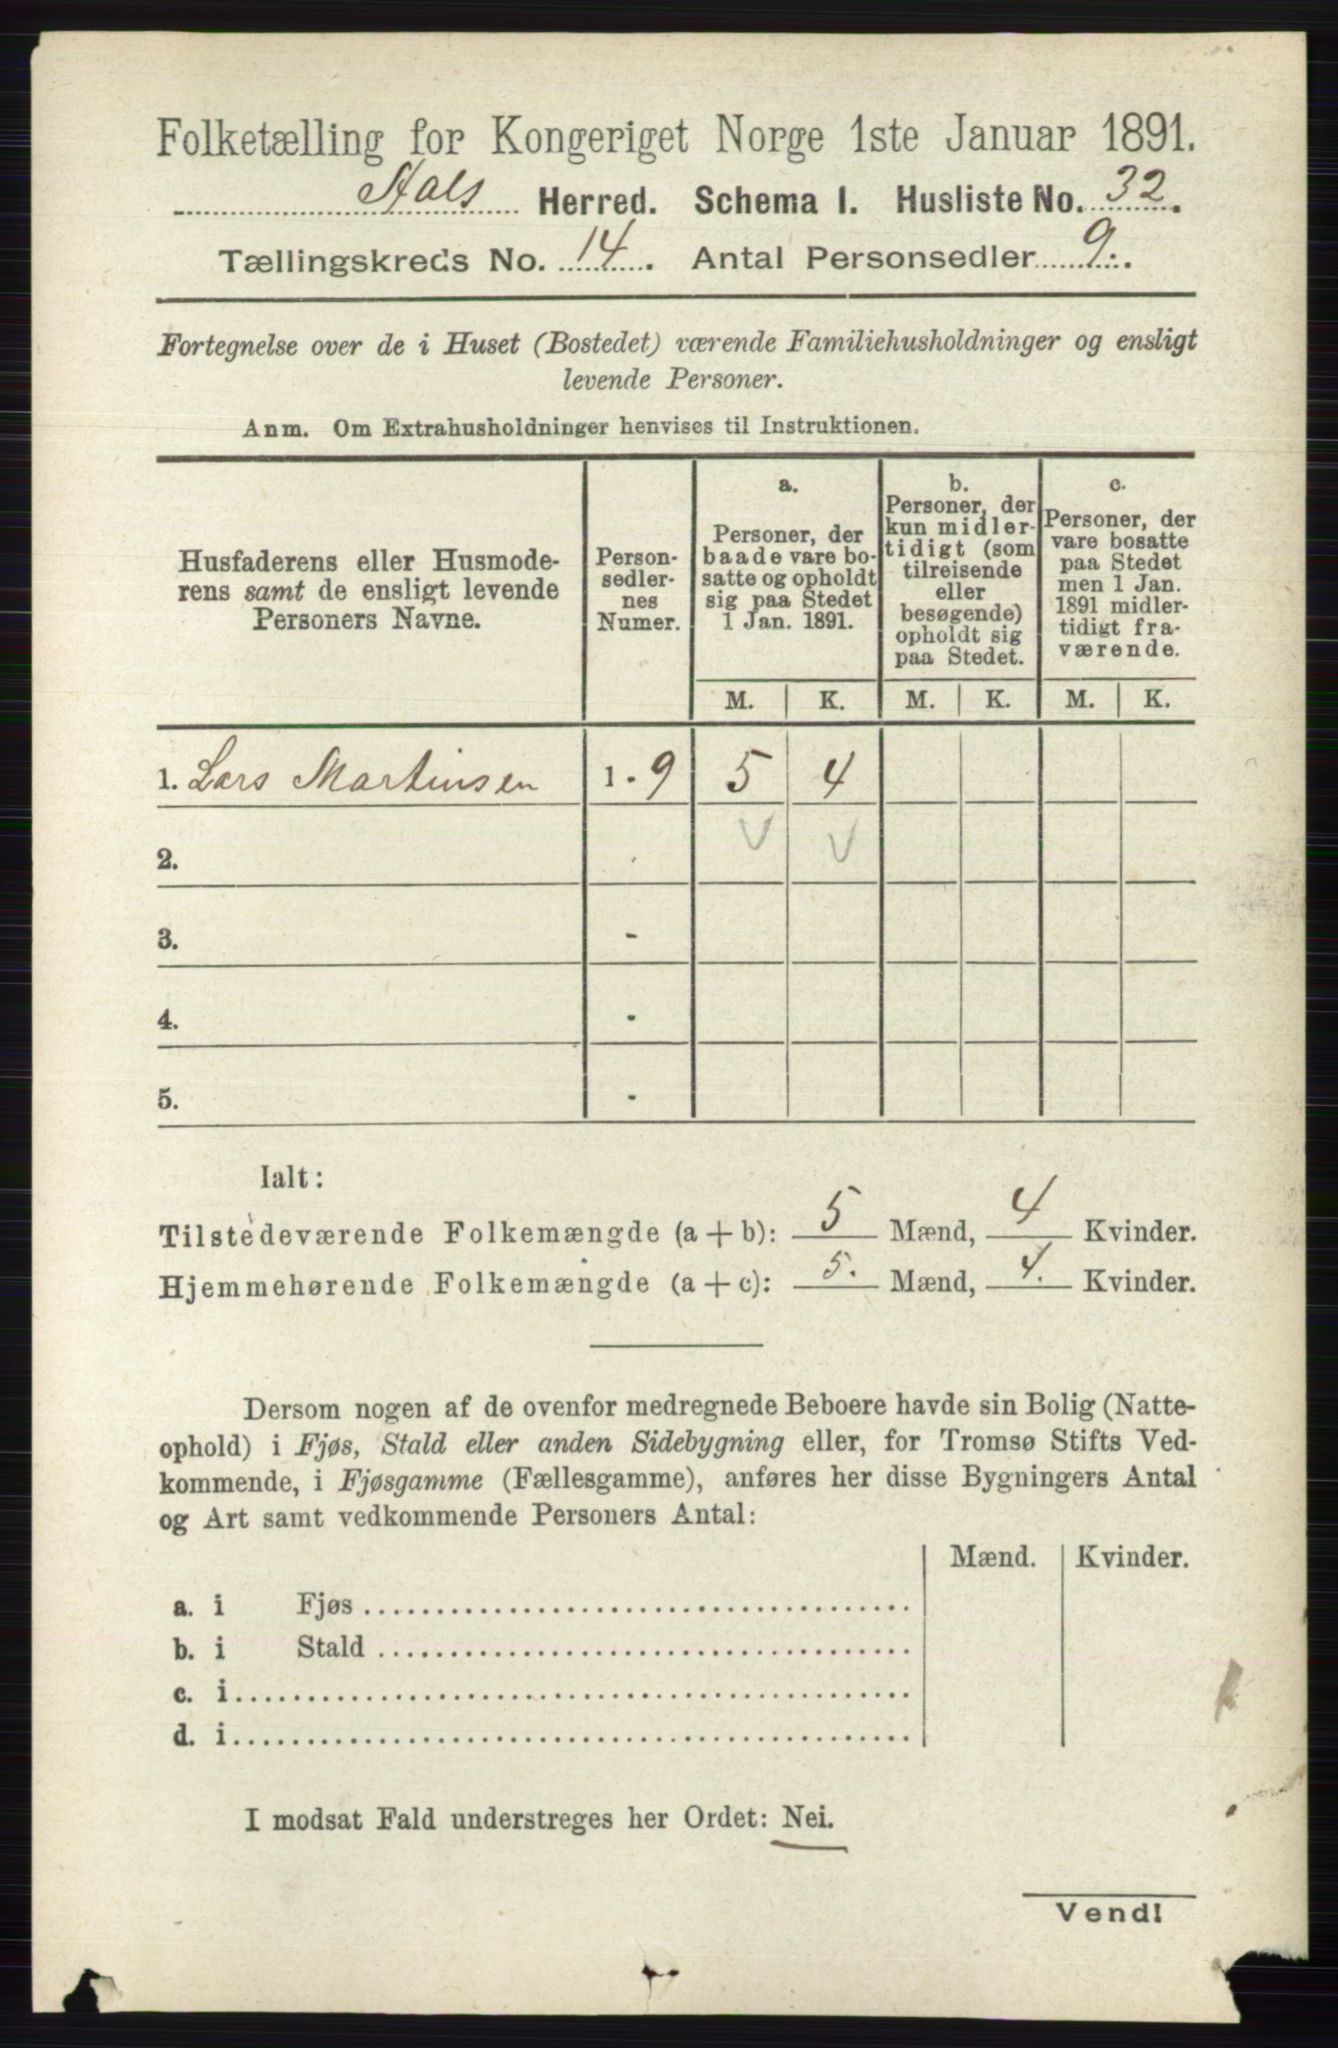 Folketælling for Kongeriget Norge 1ste Januar 1891.
Herred. Schema I. Husliste No. 32.
Tællingskreds No. 14. Antal Personsedler 9.
Fortegnelse over de i Huset (Bostedet) værende Familiehusholdninger og ensligt
levende Personer.
Anm. Om Extrahusholdninger henvises til Instruktionen.
Husfaderens eller Husmode-
rens samt de ensligt levende
Personers Navne.
Person-
sedler-
nes
Numer.
a.
Personer, der
baade vare bo-
satte og opholdt
sig paa Stedet
1 Jan. 1891.
b.
Personer, der
kun midler-
tidigt (som
tilreisende
eller
besøgende)
opholdt sig
paa Stedet.
c.
Personer, der
vare bosatte
paa Stedet
men 1 Jan.
1891 midler-
tidigt fra-
værende.
M. K. M. K. M. K.
1. Lars Martinsen 1-9 5 4
2.
3. -
4. -
5. -
Ialt:
Tilstedeværende Folkemængde (a + b): 5 Mænd, 4 Kvinder.
Hjemmehørende Folkemængde (a + c): 5. Mænd, 4. Kvinder.
Dersom nogen af de ovenfor medregnede Beboere havde sin Bolig (Natte-
ophold) i Fjøs, Stald eller anden Sidebygning eller, for Tromsø Stifts Ved-
kommende, i Fjøsgamme (Fællesgamme), anføres her disse Bygningers Antal
og Art samt vedkommende Personers Antal:
Mænd. Kvinder.
a. i Fjøs
b. i Stald
c. i
d. i
I modsat Fald understreges her Ordet: Nei.
Vend!